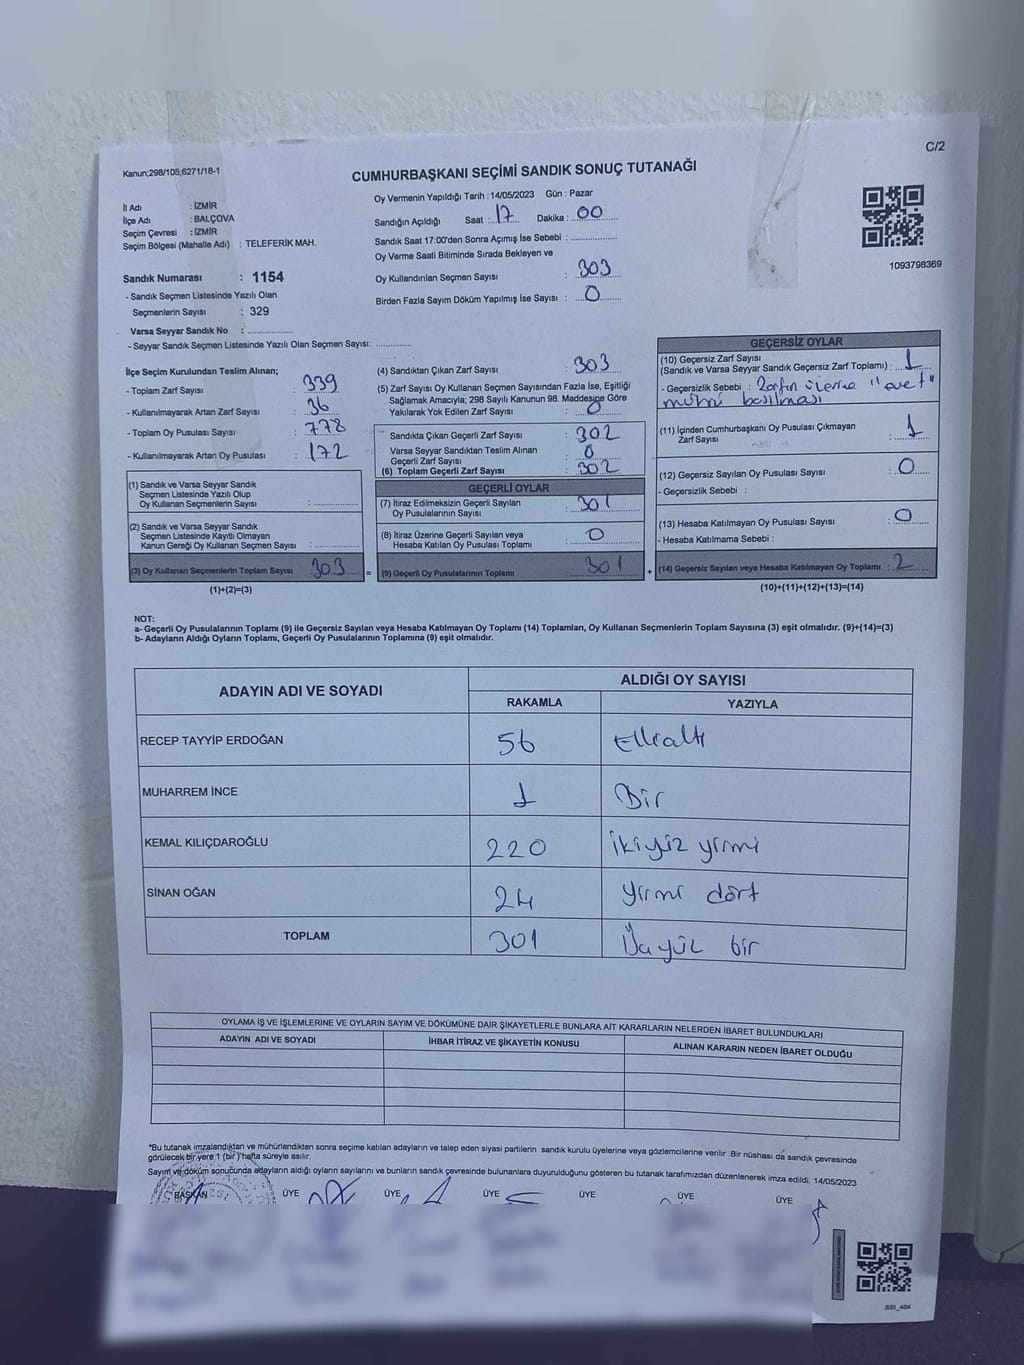 C/2
Kanun;298/105;6271/18-1
CUMHURBAŞKANI SEÇİMİ SANDIK SONUÇ TUTANAĞI
İl Adı : İZMİR
İlçe Adı : BALÇOVA
Seçim Çevresi : İZMİR
Seçim Bölgesi (Mahalle Adı) : TELEFERİK MAH.
Sandık Numarası : 1154
- Sandık Seçmen Listesinde Yazılı Olan
Seçmenlerin Sayısı : 329
Varsa Seyyar Sandık No :
- Seyyar Sandık Seçmen Listesinde Yazılı Olan Seçmen Sayısı:
Oy Vermenin Yapıldığı Tarih : 14/05/2023 Gün : Pazar
Sandığın Açıldığı Saat : 17 Dakika : 00
Sandık Saat 17:00'den Sonra Açımış İse Sebebi :
Oy Verme Saati Bitiminde Sırada Bekleyen ve
Oy Kullandırılan Seçmen Sayısı : 303
Birden Fazla Sayım Döküm Yapılmış İse Sayısı : 0
1093798369
İlçe Seçim Kurulundan Teslim Alınan;
- Toplam Zarf Sayısı : 339
- Kullanılmayarak Artan Zarf Sayısı : 36
- Toplam Oy Pusulası Sayısı : 778
- Kullanılmayarak Artan Oy Pusulası : 172
(1) Sandık ve Varsa Seyyar Sandık
Seçmen Listesinde Yazılı Olup
Oy Kullanan Seçmenlerin Sayısı :
(2) Sandık ve Varsa Seyyar Sandık
Seçmen Listesinde Kayıtlı Olmayan
Kanun Gereği Oy Kullanan Seçmen Sayısı :
(3) Oy Kullanan Seçmenlerin Toplam Sayısı : 303
(1)+(2)=(3)
(4) Sandıktan Çıkan Zarf Sayısı : 303
(5) Zarf Sayısı Oy Kullanan Seçmen Sayısından Fazla İse, Eşitliği
Sağlamak Amacıyla; 298 Sayılı Kanunun 98. Maddesine Göre
Yakılarak Yok Edilen Zarf Sayısı : 0
Sandıkta Çıkan Geçerli Zarf Sayısı : 302
Varsa Seyyar Sandıktan Teslim Alınan
Geçerli Zarf Sayısı : 0
(6) Toplam Geçerli Zarf Sayısı : 302
GEÇERLİ OYLAR
(7) İtiraz Edilmeksizin Geçerli Sayılan
Oy Pusulalarının Sayısı : 301
(8) İtiraz Üzerine Geçerli Sayılan veya
Hesaba Katılan Oy Pusulası Toplamı : 0
= (9) Geçerli Oy Pusulalarının Toplamı : 301 +
GEÇERSİZ OYLAR
(10) Geçersiz Zarf Sayısı
(Sandık ve Varsa Seyyar Sandık Geçersiz Zarf Toplamı) : 1
- Geçersizlik Sebebi : Zarfın üzerine "evet"
mührü basılması
(11) İçinden Cumhurbaşkanı Oy Pusulası Çıkmayan
Zarf Sayısı : 1
(12) Geçersiz Sayılan Oy Pusulası Sayısı : 0
- Geçersizlik Sebebi :
(13) Hesaba Katılmayan Oy Pusulası Sayısı : 0
- Hesaba Katılmama Sebebi :
(14) Geçersiz Sayılan veya Hesaba Katılmayan Oy Toplamı : 2
(10)+(11)+(12)+(13)=(14)
NOT:
a- Geçerli Oy Pusulalarının Toplamı (9) ile Geçersiz Sayılan veya Hesaba Katılmayan Oy Toplamı (14) Toplamları, Oy Kullanan Seçmenlerin Toplam Sayısına (3) eşit olmalıdır. (9)+(14)=(3)
b- Adayların Aldığı Oyların Toplamı, Geçerli Oy Pusulalarının Toplamına (9) eşit olmalıdır.
ADAYIN ADI VE SOYADI
ALDIĞI OY SAYISI
RAKAMLA YAZIYLA
RECEP TAYYİP ERDOĞAN 56 Ellialtı
MUHARREM İNCE 1 Bir
KEMAL KILIÇDAROĞLU 220 ikiyüz yirmi
SİNAN OĞAN 24 yirmi dört
TOPLAM 301 Üçyüz bir
OYLAMA İŞ VE İŞLEMLERİNE VE OYLARIN SAYIM VE DÖKÜMÜNE DAİR ŞİKAYETLERLE BUNLARA AİT KARARLARIN NELERDEN İBARET BULUNDUKLARI
ADAYIN ADI VE SOYADI İHBAR İTİRAZ VE ŞİKAYETİN KONUSU ALINAN KARARIN NEDEN İBARET OLDUĞU
*Bu tutanak imzalandıktan ve mühürlendikten sonra seçime katılan adayların ve talep eden siyasi partilerin sandık kurulu üyelerine veya gözlemcilerine verilir .Bir nüshası da sandık çevresinde
görülecek bir yere 1 (bir ) hafta süreyle asılır.
Sayım ve döküm sonucunda adayların aldığı oyların sayılarını ve bunların sandık çevresinde bulunanlara duyurulduğunu gösteren bu tutanak tarafımızdan düzenlenerek imza edildi. 14/05/2023
BAŞKAN ÜYE ÜYE ÜYE ÜYE ÜYE ÜYE
SSI_404